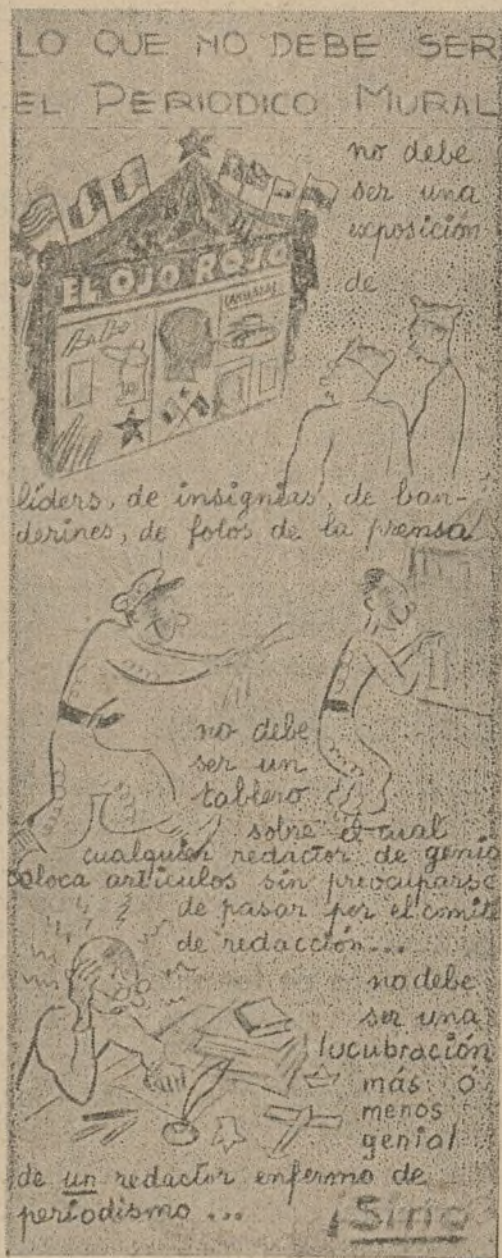 LO QUE NO DEBE SER
EL PERIODICO MURAL
no debe
ser una
exposición
de
EL OJO ROJO
líders, de insignias, de ban-
derines, de fotos de la prensa
no debe
ser un
tablero
sobre el cual
cualquier redactor de genio
coloca artículos sin preocuparse
de pasar por el comité
de redacción...
no debe
ser una
lucubración
más ó
menos
genial
de un redactor enfermo de
periodismo ...